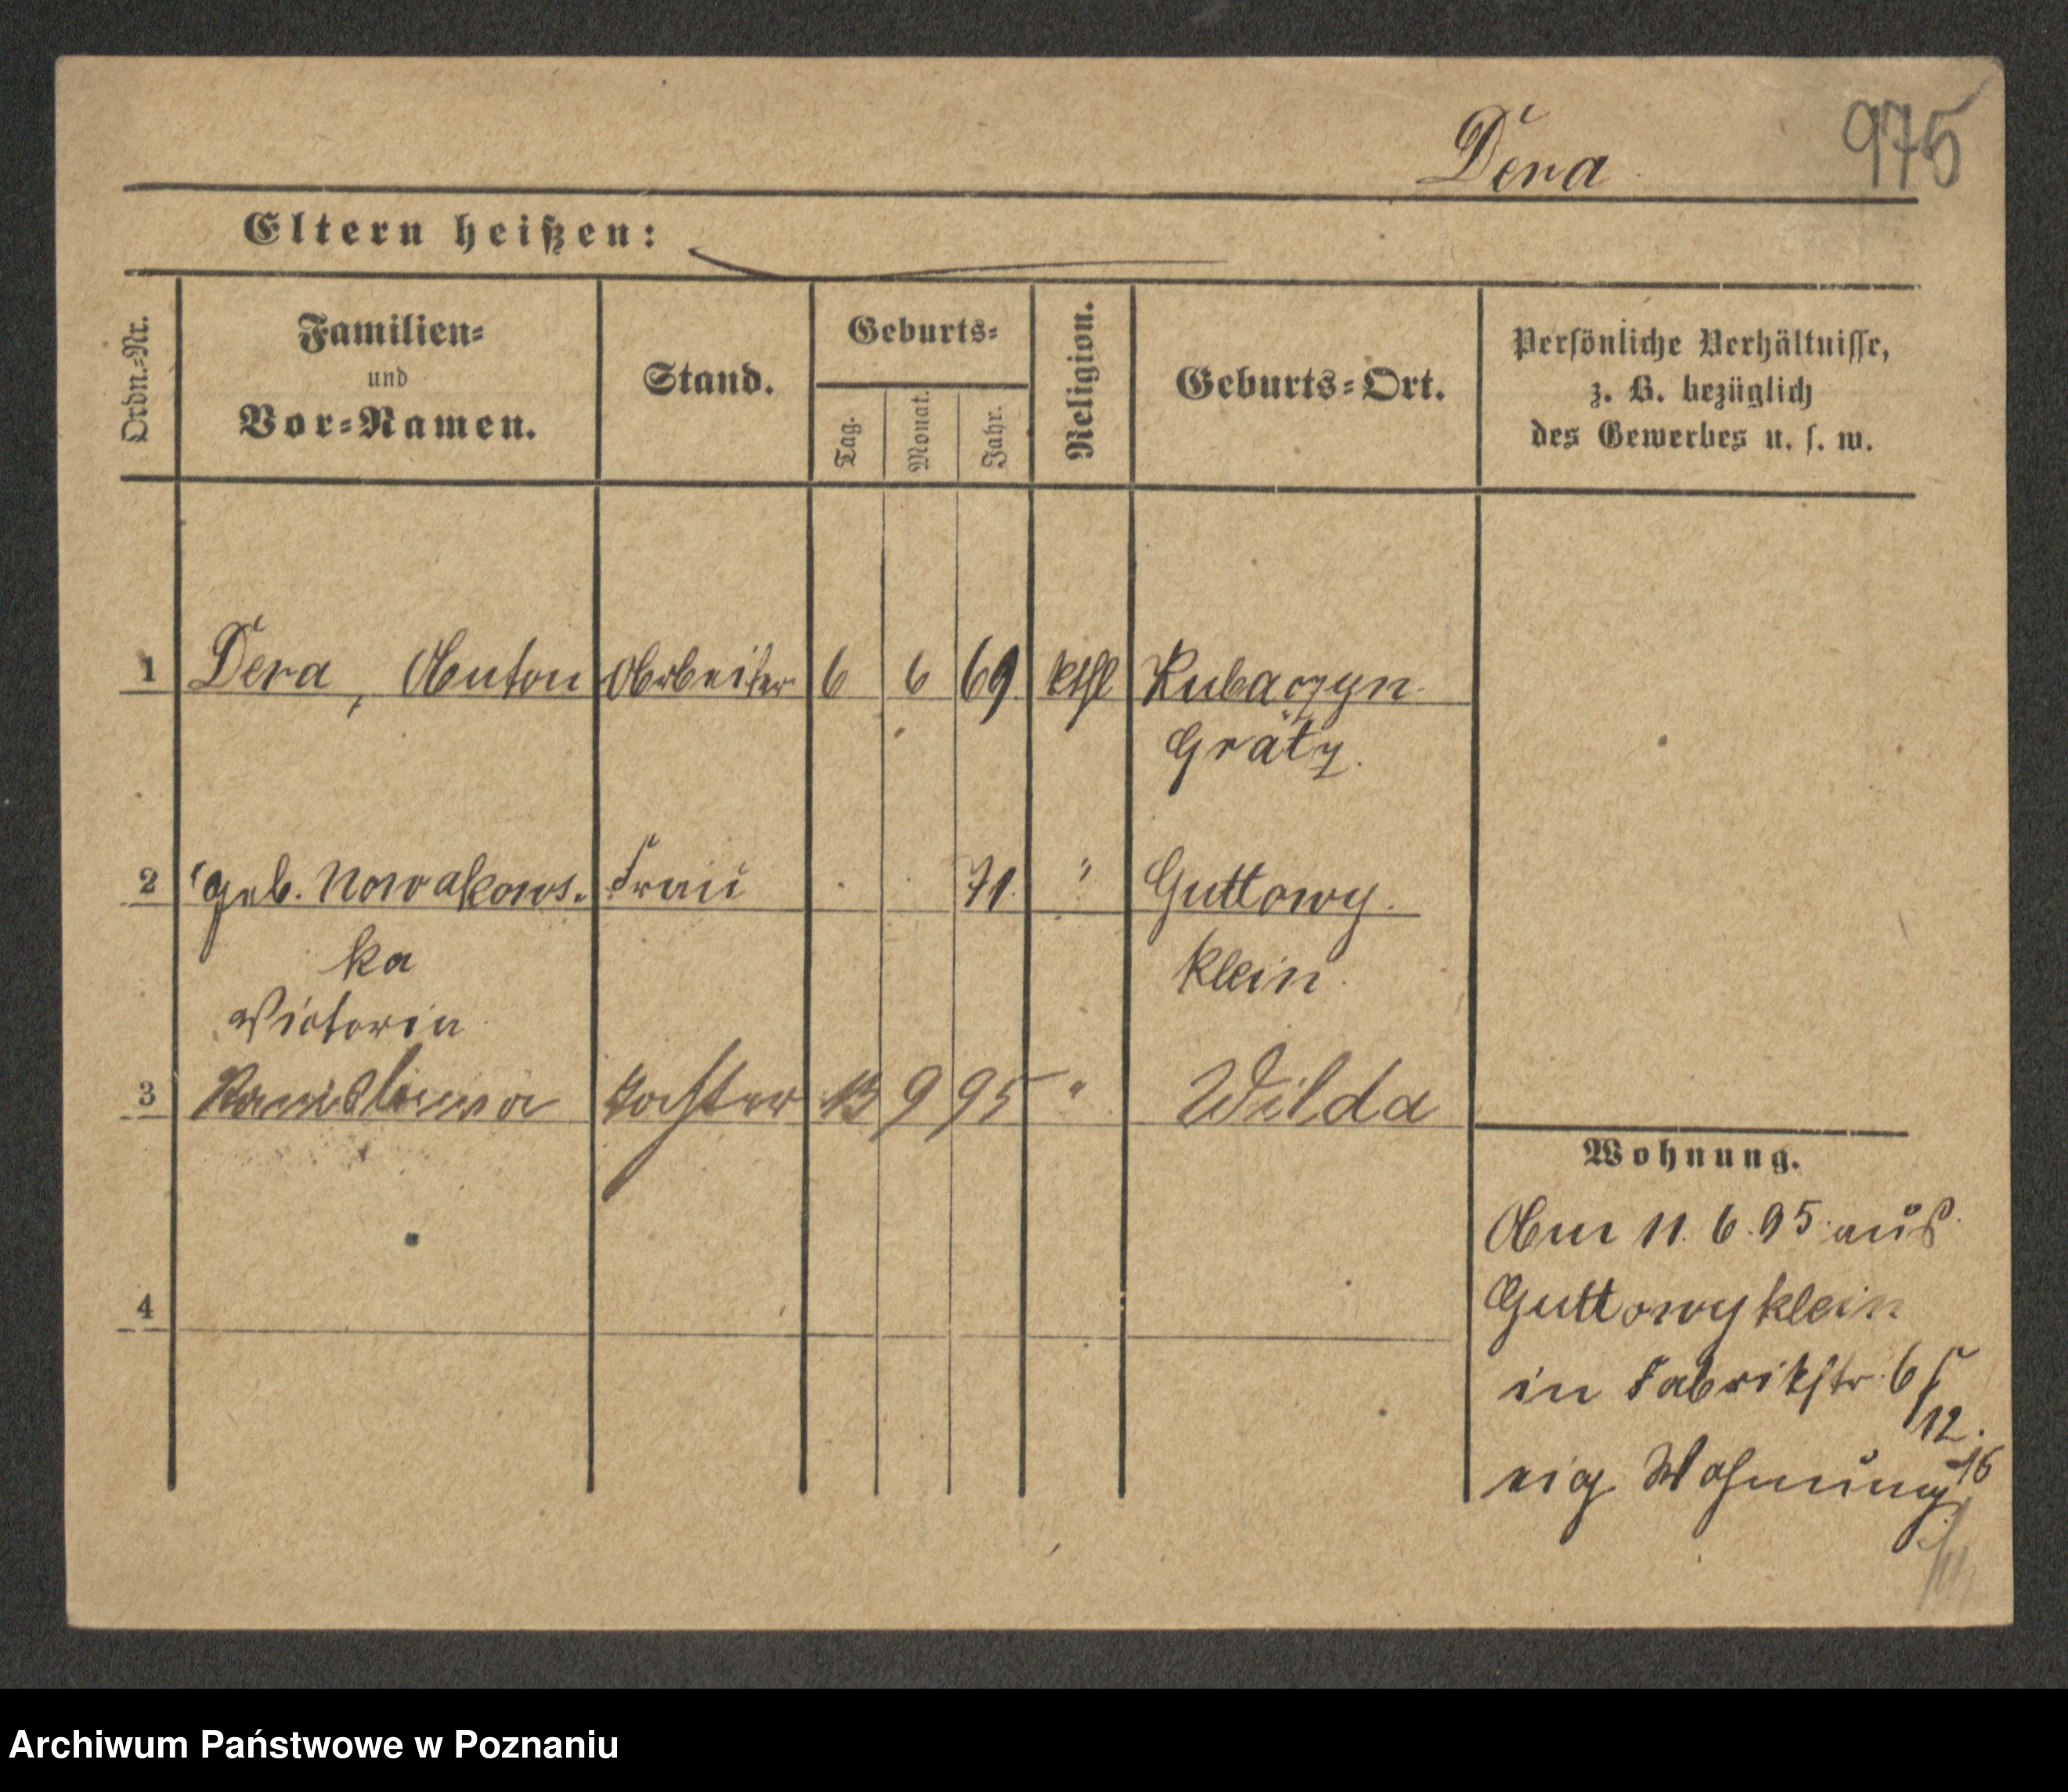 975
Dera
Eltern heißen:
Ordn.=Nr.
Familien=
und
Vor=Namen.
Stand.
Geburts=
Tag.
Monat.
Jahr.
Religion.
Geburts=Ort.
Persönliche Verhältnisse,
z. B. bezüglich
des Gewerbes u. s. w.
1 Dera, Anton Arbeiter 6 6 69 kthl Kubaczyn.
Grätz.
2 geb. Nowakows. Frau 71. " Guttowy.
ka klein.
Victoria
3 Tochter 13 9 95 " Wilda
4
Wohnung.
Am 11. 6. 95 aus
Guttowy klein
in Fabrikstr. 6
12.
eig Wohnung
Archiwum Państwowe w Poznaniu